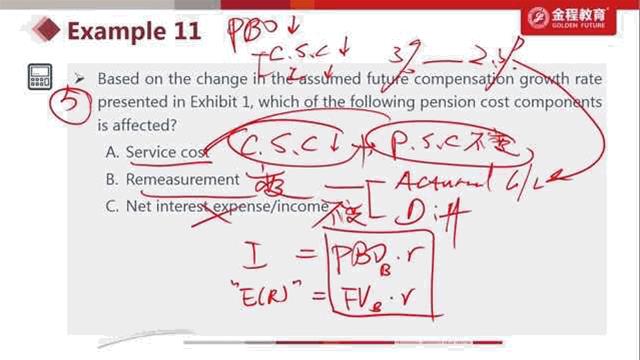 Example 11
金程教育
GOLDEN FUTURE
PBO↓
C.S.C↓
I ↓
3% — 2.5%
Based on the change in the assumed future compensation growth rate
⑤ presented in Exhibit 1, which of the following pension cost components
is affected?
A. Service cost C.S.C↓ + P.S.C 不变
B. Remeasurement 变 Actuarial G/L
C. Net interest expense/income 不变 Diff
I = PBO_B · r
"E(R)" = FV_B · r